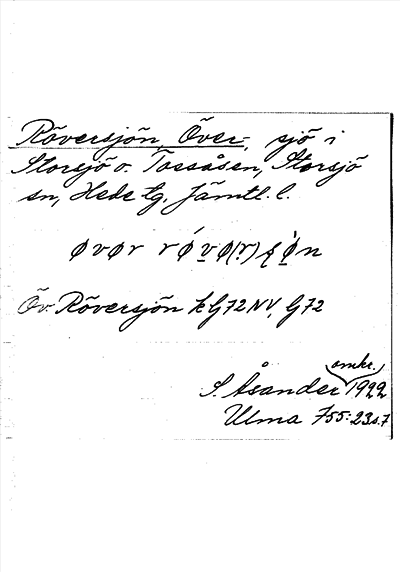 Röversjön, Över-, sjö i
Storsjö o. Tossåsen, Storsjö
sn, Hede tg, Jämtl. l.
øvør
Öv. Röversjön k G72NV, G72
omkr.
S. Åsander 1922
Ulma 755:23 s. 7